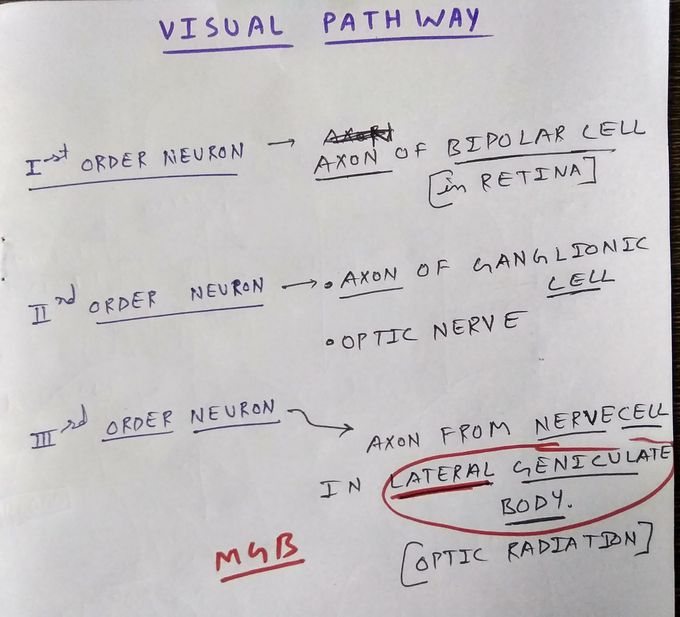 VISUAL PATHWAY
Ist ORDER NEURON → AXON OF BIPOLAR CELL
[in RETINA]
IInd ORDER NEURON → • AXON OF GANGLIONIC
CELL
• OPTIC NERVE
IIIrd ORDER NEURON → AXON FROM NERVE CELL
IN LATERAL GENICULATE
BODY.
[OPTIC RADIATION]
MGB